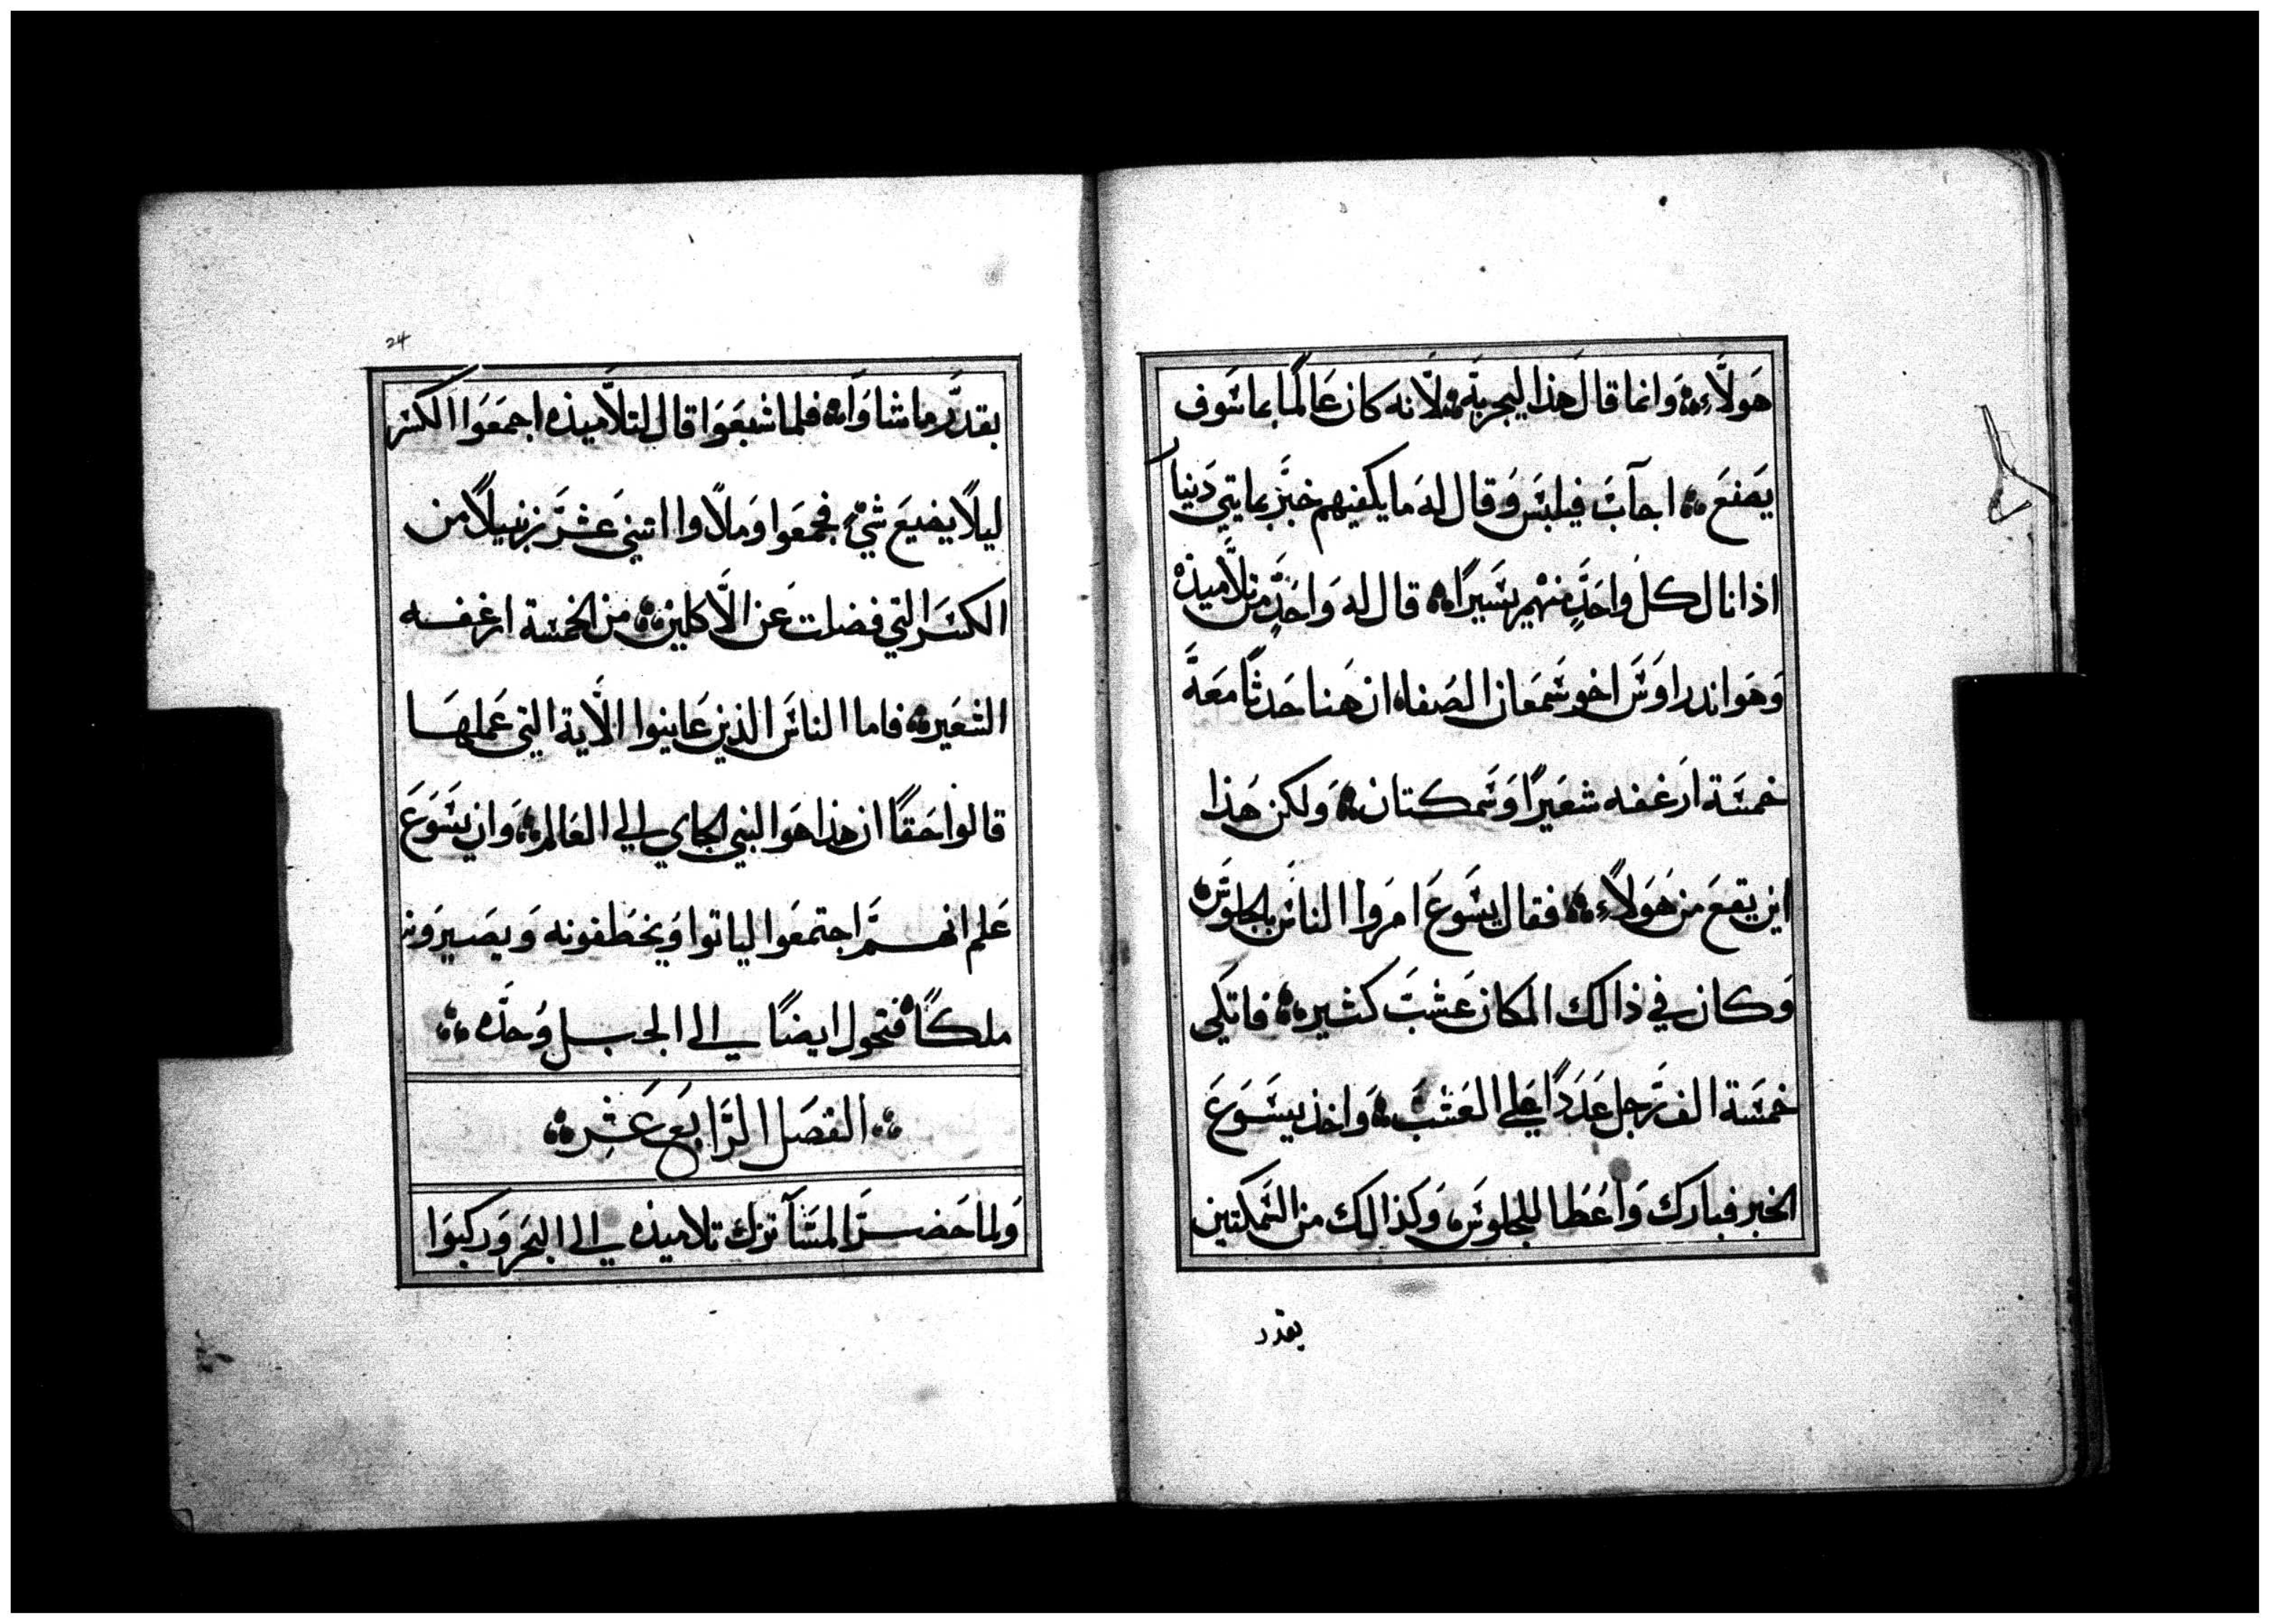 هَولَّاءِ؞ وَانما قال هذا ليجربهَّ؞ لاَّنه كان عَالماً بما سَوف
يَصنعَ؞ اجآبَ فيلبسَ وَقال لهَ مَا يكفيهم خبَز بمايتي دَنياَ
اذا نال كل واحَدٍ منهْم يسَيراً؞ قال له وَاحَدٍ من تلاَّميذهْ
وَهوَ اندراوَسَ اخو سَمعَان الصَفاه ان هَنا حَدثاً معَهَّ
خمسَة ارَغفه شعَيراً وَسَمكتان؞ وَلكن هَذا
اين يقعَ من هَوَلاًءِ؞ فقال يسَوعَ امرَوا الناسَ بالجلوسَ؞
وَكان في ذالك المكان عَشبَ كثير؞ فاتكَى
خمسَة الف رَجل عَدَداً علي العَشبَ؞ وَاخذ يسَوَعَ
الخبز فبارك وَاعَطا للجلوسَ؞ وَكذالك من السَّمكتين
بقدر
24
بقدَّر ما شاوَا؞ فلما شبعَوَا قال لتلاَّميذه اجمعَوَا الكسَر
ليلاً يضيعَ شيْ؞ فجمعَوا وَملاًوا اتنيَ عشرَّ زنبيلاً من
الكسَر التي فضلت عَن الاَّكلين؞ من الخمسَة ارغفـه
الشعَير؞ فاما الناسَ الذين عَاينوا الاَّية التي عَملهـَا
قالوا حَقاً ان هذا هَوَ النبي الجاي الي العَالم؞ وَان يسَوَعَ
عَلم انهـمَّ اجتمعَوا لياتوا وَيخطَفونه وَيصَيروَنه
ملكاً فتحول ايضاً الي الجبـل وُحدَّه؞
؞ الفصَل الرَّابعَ عَشِر؞
وَلما حَضـرَّ المسَآ نزك تلاميذه الي البحَر وَركبوَا